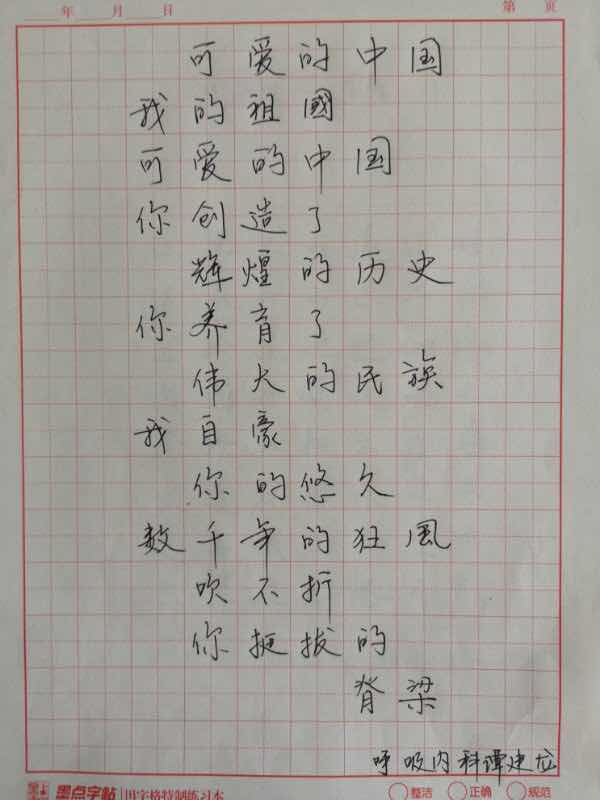 年 月 日 第 页
可爱的中国
我的祖國
可爱的中国
你创造了
辉煌的历史
你养育了
伟大的民族
我自豪
你的悠久
数千年的狂風
吹不折
你挺拔的
脊梁
呼吸内科谭建位
墨点字帖 田字格特制练习本 整洁 正确 规范